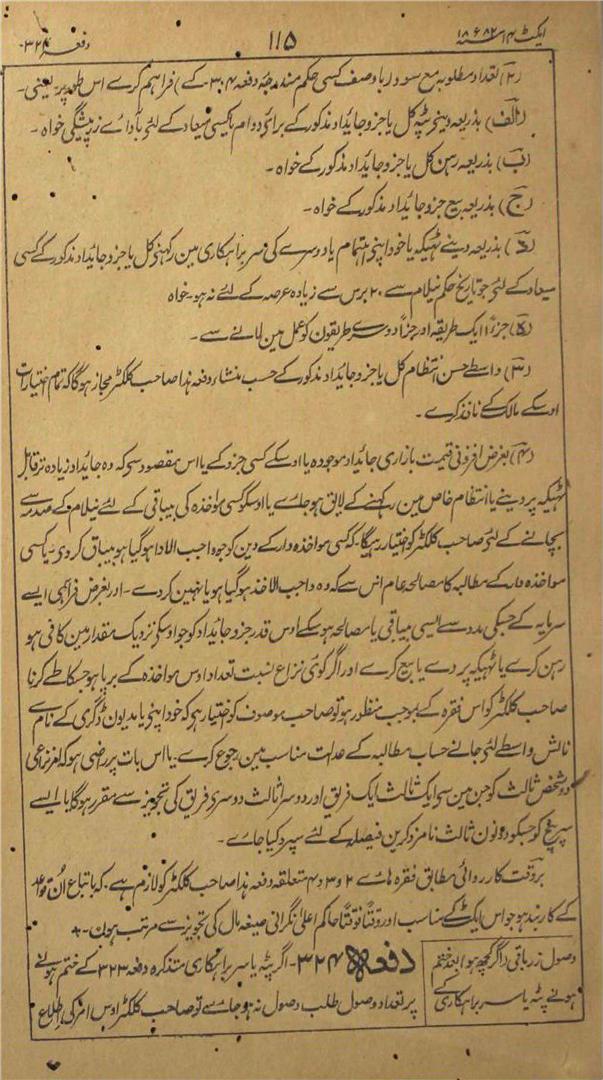 ایکٹ ۱۴ ۱۸۸۲ء
۱۱۵
دفعہ ۳۲۴
(۲) تعداد مطلوبہ مع سود (باوصف کسی حکم مندرجہ دفعہ ۳۰۴ کے) فراہم کرے اس طور پر یعنی۔
(الف) بذریعہ دینے پٹہ کل یا جزو جائداد مذکور کے برائے دوام یا کسی میعاد کے لئے بأداے زر پیشگی خواہ۔
(ب) بذریعہ رہن کل یا جزو جائیداد مذکور کے خواہ۔
(ج) بذریعہ بیع جزو جائیداد مذکور کے خواہ۔
(د) بذریعہ دینے ٹھیکہ یا خود اپنی اہتمام یا دوسرے کی سربراہکاری مین رکہنی کل یا جزو جائداد مذکور کے کسی
میعاد کے لئے جو تاریخ حکم نیلام سے ۲۰ برس سے زیادہ عرصہ کے لئے نہ ہو۔ خواہ
(ہ) جزاً ایک طریقہ اور جزاً دوسرے طریقون کو عمل مین لانے سے۔
(۳) واسطے حسن انتظام کل یا جزو جائیداد مذکور کے حسب منشاء دفعہ ہذا صاحب کلکٹر مجاز ہوگا کہ تمام اختیارات
اوسکے مالک کے نافذ کرے۔
(۴) بغرض افزونی قیمت بازاری جائیداد موجودہ یا اوسکے کسی جزو کے یا اس مقصود سی کہ وہ جائیداد زیادہ تر قابل
ٹھیکہ پر دینے یا انتظام خاص مین رکہنے کے لایق ہوجاے یا اوسکو کسی مواخذہ کی بیباقی کے لئے نیلام کے صدمہ سے
بچانے کے لئے صاحب کلکٹر کو اختیار رہیگا۔ کہ کسی مواخذہ دار کے دین کو جو واجب الادا ہوگیا ہو بیباق کردی۔ یا کسی
مواخذہ دار کے مطالبہ کا مصالحہ عام اس سے کہ وہ واجب الاخذ ہوگیا ہو یا نہین کردے۔ اور بغرض فراہمی ایسے
سرمایہ کے جسکی مدد سے ایسی بیباقی یا مصالحہ ہوسکے اوس قدر جزو جائیداد کو جو اوسکی نزدیک مقدار مین کافی ہو
رہن کرے یا ٹھیکہ پر دے یا بیع کرے اور اگر کوئی نزاع نسبت تعداد اوس مواخذہ کے برپا ہو جسکا طے کرنا
صاحب کلکٹر کو اس فقرہ کے بموجب منظور ہو تو صاحب موصوف کو اختیار ہی کہ خود اپنی یا مدیون ڈگری کے نام سے
نالش واسطے لئی جانے حساب مطالبہ کے عدالت مناسب مین رجوع کرے۔ یا اس بات پر راضی ہو کہ امر نزاعی
دو شخص ثالث کو جن مین سی ایک ثالث ایک فریق اور دوسرا ثالث دوسری فریق کی تجویز سے مقرر ہوگا یا ایسے
سرپنچ کو جسکو دونون ثالث نامزد کرین فیصلہ کے لئے سپرد کیا جاے۔
بروقت کارروائی مطابق فقرہ ہاے ۲ و ۳ و ۴ متعلقہ دفعہ ہذا صاحب کلکٹر کو لازم ہے کہ باتباع اُن قواعد
کے کاربند ہو جو اس ایکٹ کے مناسب اور وقتاً فوقتاً حاکم اعلیٰ نگرانی صیغہ مال کی تجویز سے مرتب ہون۔
وصول زر باقی (اگر کچھ ہو) بعد ختم
ہونے پٹہ یا سربراہکاری کے
دفعہ ۳۲۴۔ اگر پٹہ یا سربراہکاری متذکرہ دفعہ ۳۲۳ کے ختم ہونے
پر تعداد وصول طلب وصول نہ ہوجاے تو صاحب کلکٹر اوس امر کی اطلاع